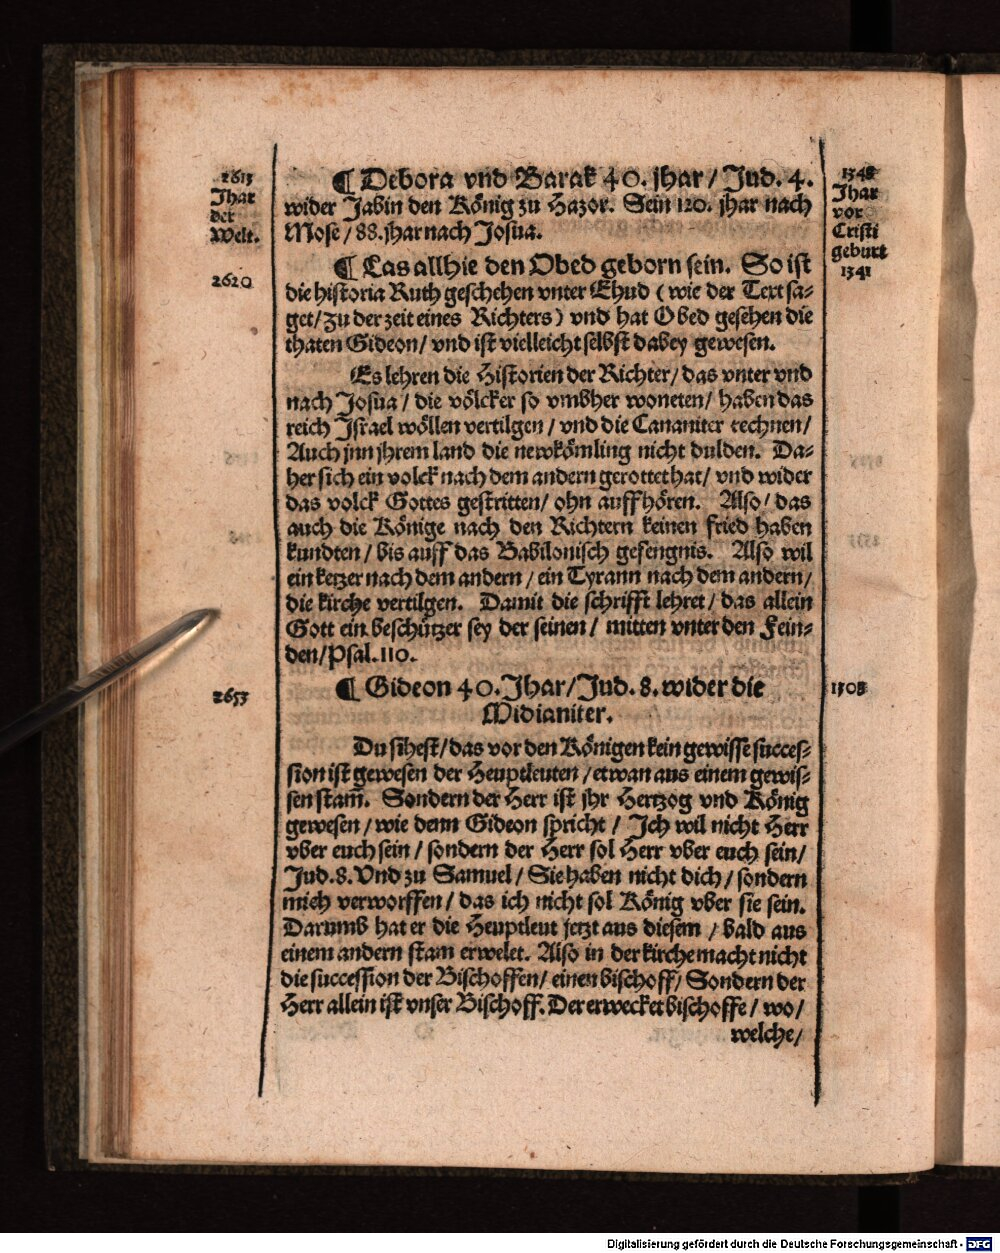 2613
Jhar
der
Welt.
2620
2653
¶ Debora vnd Barak 40. jhar / Jud. 4.
wider Jabin den König zu Hazor. Sein 120. jhar nach
Mose / 88. jhar nach Josua.
¶ Las allhie den Obed geborn sein. So ist
die historia Ruth geschehen vnter Ehud ( wie der Text sa-
get / zu der zeit eines Richters ) vnd hat Obed gesehen die
thaten Gideon / vnd ist vielleicht selbst dabey gewesen.
Es lehren die Historien der Richter / das vnter vnd
nach Josua / die völcker so vmbher woneten / haben das
reich Israel wöllen vertilgen / vnd die Cananiter rechnen /
Auch jnn jhrem land die newkömling nicht dulden. Da-
her sich ein volck nach dem andern gerottet hat / vnd wider
das volck Gottes gestritten / ohn auffhören. Also / das
auch die Könige nach den Richtern keinen fried haben
kundten / bis auff das Babilonisch gefengnis. Also wil
ein ketzer nach dem andern / ein Tyrann nach dem andern /
die kirche vertilgen. Damit die schrifft lehret / das allein
Gott ein beschützer sey der seinen / mitten vnter den Fein-
den / Psal. 110.
¶ Gideon 40. Jhar / Jud. 8. wider die
Midianiter.
Du sihest / das vor den Königen kein gewisse succes-
sion ist gewesen der Heuptleuten / etwan aus einem gewis-
sen stam̃. Sondern der Herr ist jhr Hertzog vnd König
gewesen / wie denn Gideon spricht / Ich wil nicht Herr
vber euch sein / sondern der Herr sol Herr vber euch sein /
Jud. 8. Vnd zu Samuel / Sie haben nicht dich / sondern
mich verworffen / das ich nicht sol König vber sie sein.
Darumb hat er die Heuptleut jetzt aus diesem / bald aus
einem andern stam erwelet. Also in der kirche macht nicht
die succession der Bischoffen / einen bischoff / Sondern der
Herr allein ist vnser Bischoff. Der erwecket bischoffe / wo /
welche /
1348
Jhar
vor
Cristi
geburt
1341
1308
Digitalisierung gefördert durch die Deutsche Forschungsgemeinschaft - DFG